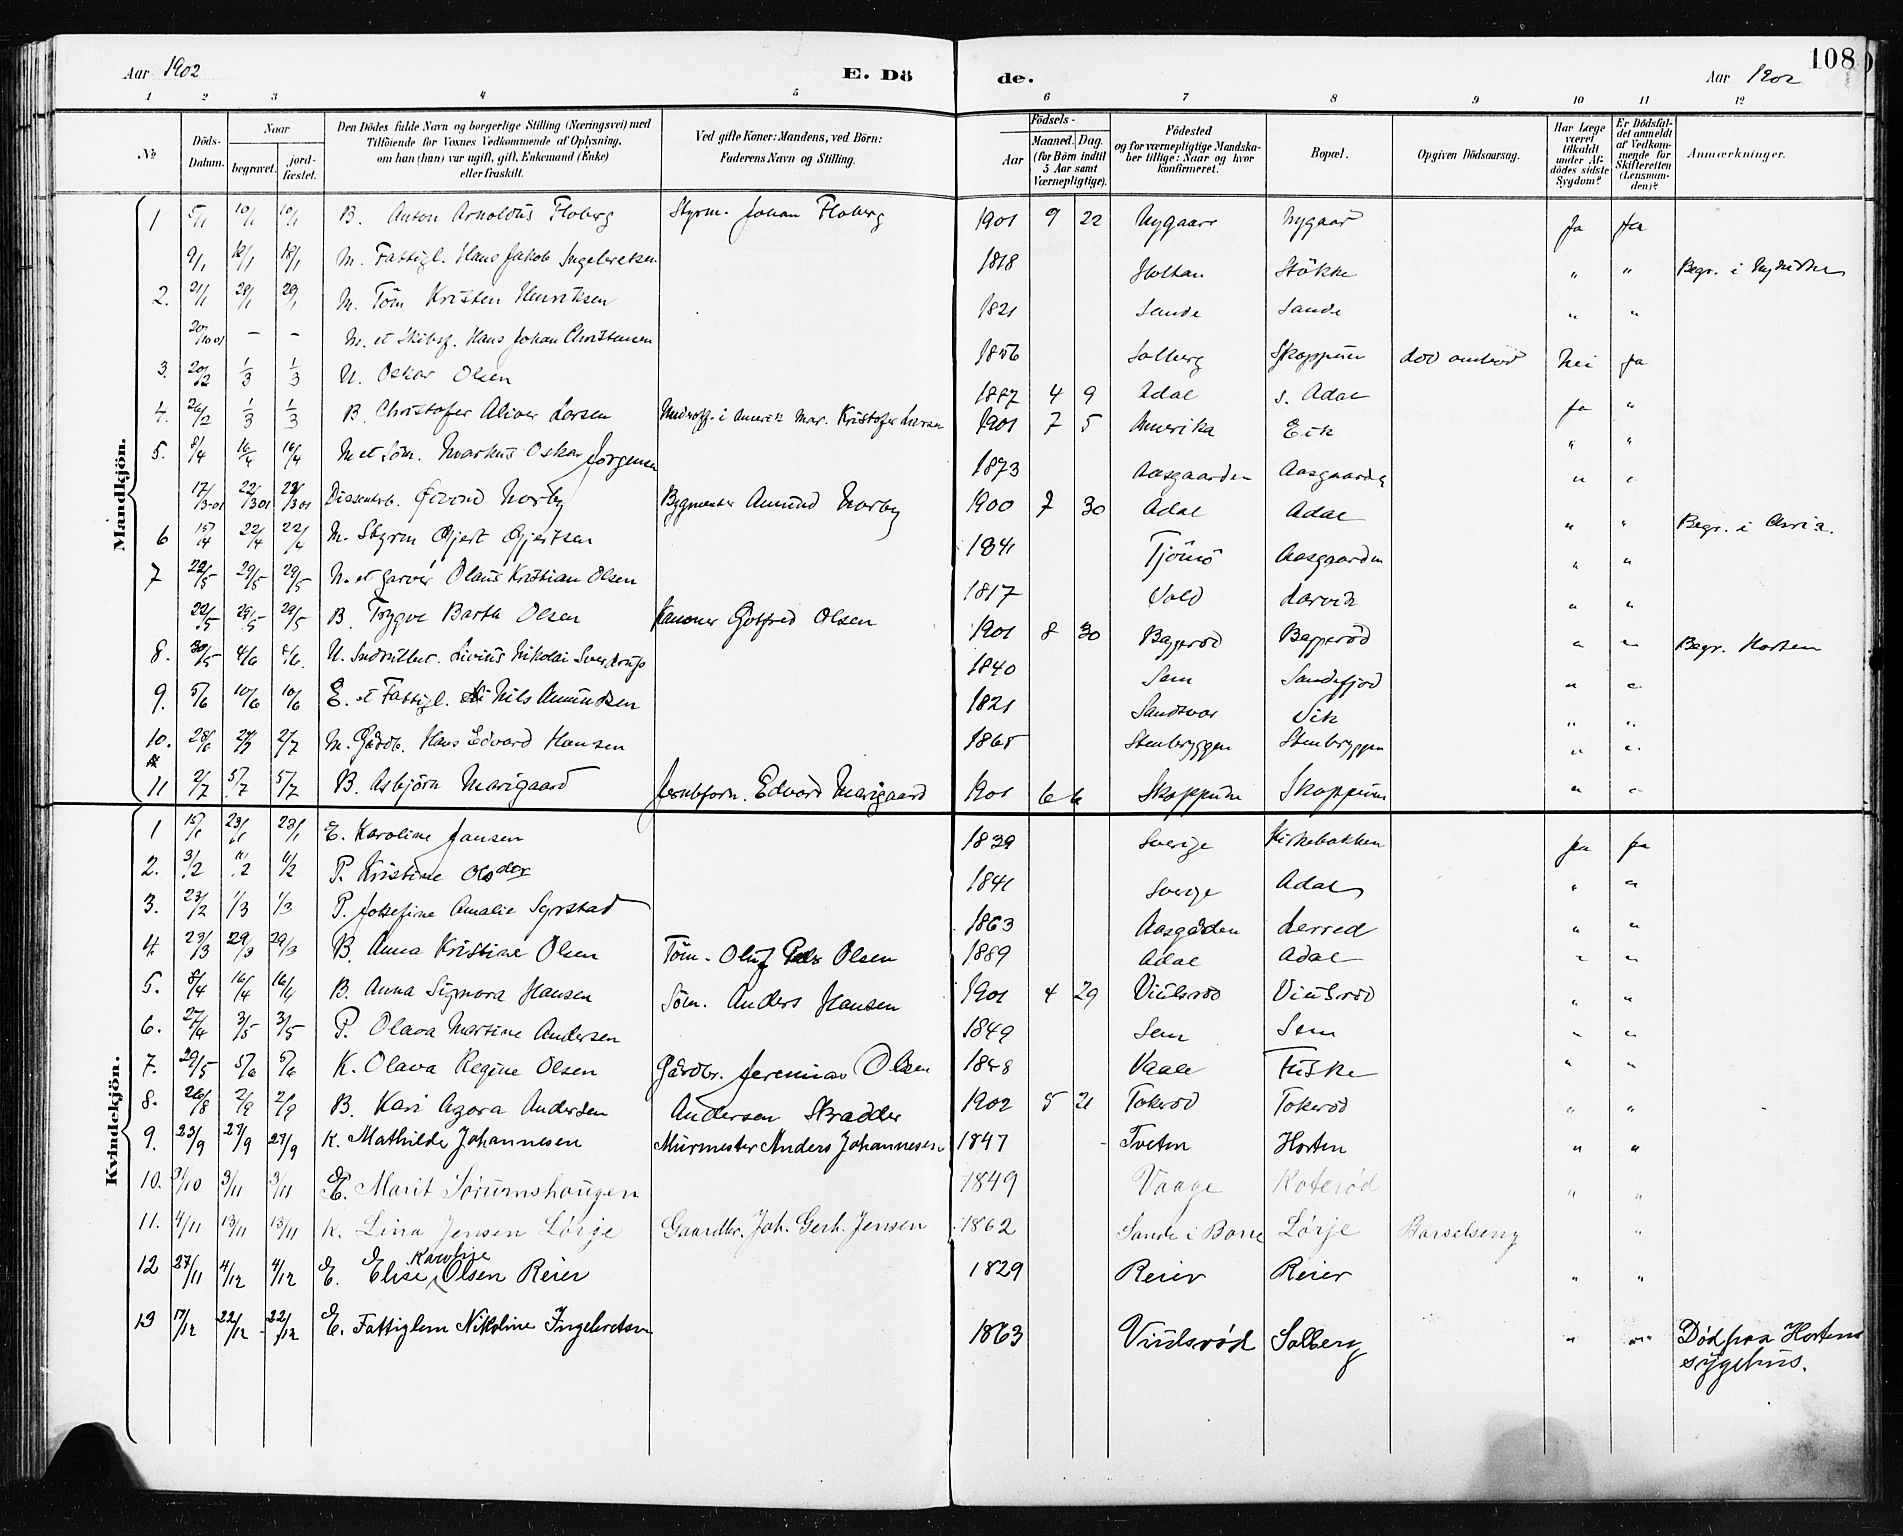 108
Aar 1902 E. Dö de. Aar 1902
1 2 3 4 5 6 7 8 9 10 11 12
No Döds-Datum. Naar begravet. jord-fæstet. Den Dödes fulde Navn og borgerlige Stilling (Næringsvei) med Tilföiende for Voxnes Vedkommende af Oplysning, om han (hun) var ugift, gift, Enkemand (Enke) eller fraskilt. Ved gifte Koner: Mandens, ved Börn: Faderens Navn og Stilling. Födsels- Aar Maaned. Dag. (for Börn indtil 5 Aar samt Værnepligtige). Födested og for værnepligtige Mandskaber tillige: Naar og hvor konfirmeret. Bopæl. Opgiven Dödsaarsag. Har Læge været tilkaldt under Afdödes sidste Sygdom? Er Dödsfaldet anmeldt af Vedkommende for Skifteretten (Lensmanden)? Anmærkninger.
Mandkjön.
1 5/1 10/1 10/1 B. Anton Arnoldus Floberg Styrm. Johan Floberg 1901 9 22 Nygaar Nygaar Ja Ja
9/1 18/1 18/1 M. Fattigl. Hans Jakob Ingebretsen 1818 Holtan Stökke " " Begr. i
2. 21/1 29/1 29/1 M. Töm Kristen Henriksen 1821 Sande Sande " "
20/10 01 - - M. et Skibsf. Hans Johan Christensen 1856 Solberg Skoppum död ombord Nei Ja
3. 20/2 1/3 1/3 U. Oskar Olsen 1887 4 9 Adal s. Adal Ja "
4. 26/2 1/3 1/3 B. Christofer Oliver Larsen i Amerik Kristofer Larsen 1901 7 5 Amerika Eik " "
5. 8/4 16/4 16/4 M et Söm. Markus Oskar Jörgensen 1873 Aasgaarden Aasgaarden " "
17/3-01 22/3 01 22/3 01 Dissenterb. Öivind Norby Bygmester Amund Norby 1900 7 30 Adal Adal " " Begr. i Chria.
6 15/4 22/4 22/4 M. Styrm Gjert Gjertsen 1841 Tjömö Aasgaarden " "
7 22/5 29/5 29/5 M. et garver Olaus Kristian Olsen 1817 Vold Larvik " "
22/5 29/5 29/5 B. Trygve Barth Olsen Kanoner Gotfred Olsen 1901 8 30 Baggeröd Baggeröd " " Begr. Horten
8. 30/5 4/6 4/6. U. Livius Nikolai Sverdrup 1840 Sem Sandefjord " "
9. 5/6 10/6 10/6 E. et Fattigl. Nils Amundsen 1821 Sandsvær Vik " "
10. 28/6 2/7 2/7 M. Gårdb. Hans Edvard Hansen 1865 Stenbryggen Stenbryggen " "
11 2/7 5/7 5/7 B. Asbjörn Marigaard Jernbform. Edvard Marigaard 1901 6 6 Skoppum Skoppum " "
Kvindekjön.
1 15/1 23/1 23/1 E. Karoline Jansen 1839 Sverige Kirkebakken Ja Ja
2. 3/2 11/2 11/2 P. Kristine Olsdtr 1841 Sverige Adal " "
3. 23/2 1/3 1/3 P. Josefine Amalie Syrstad 1863 Aasgården Lerred " "
4. 23/3 29/3 29/3 B. Anna Kristine Olsen Töm. Oluf Olsen 1889 Adal Adal " "
5. 8/4 16/4 16/4 B. Anna Signora Hansen Söm. Anders Hansen 1901 4 29 Viulsröd Viulsröd " "
6. 27/4 3/5 3/5 P. Olava Martine Andersen 1849 Sem Sem " "
7. 29/5 5/6 5/6 K. Olava Regine Olsen Gårdbr. Jeremias Olsen 1848 Vaale Fuske " "
8. 26/8 2/9 2/9 B. Kari Agora Andersen Andersen Skrædder 1902 5 21 Tokeröd Tokeröd " "
9. 23/9 27/9 27/9 K. Mathilde Johannesen Murmester Anders Johannesen 1847 Tveten Horten " "
10. 31/10 3/11 3/11 E. Marit Sörumshaugen 1849 Vaage Roteröd " "
11. 4/11 13/11 13/11 K. Lina Jensen Lörge Gaardbr. Joh. Gerh. Jensen 1862 Sande i Borre Lörje Barselseng "
12 27/11 4/12 4/12 E. Elise Karoline Olsen Reier 1829 Reier Reier " "
13 17/12 22/12 22/12 E. Fattiglem Nikoline Ingebretsen 1863 Viulsröd Solberg " " Död paa Hortens
sygehus.